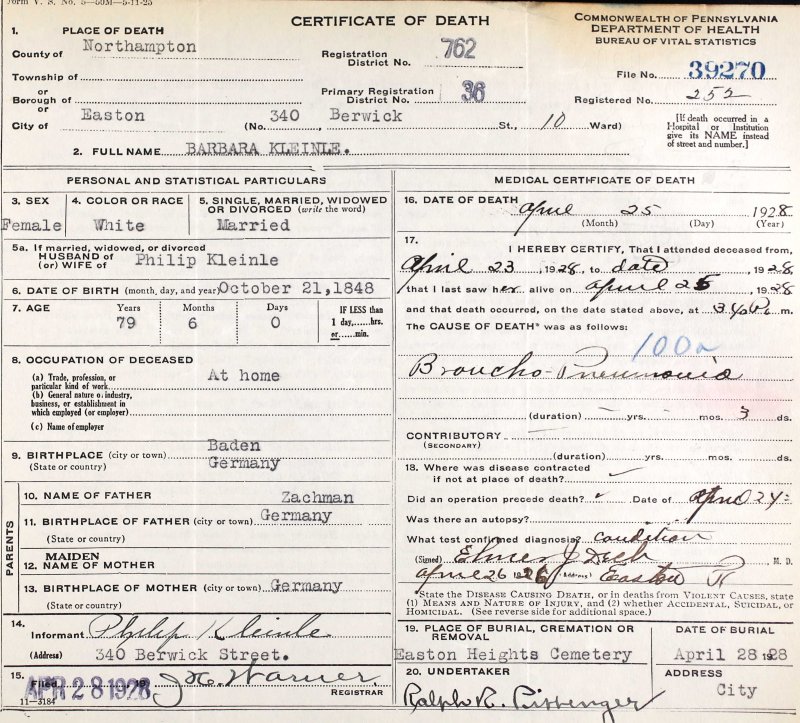 Form V. S. No. 5—50M—5-11-25
CERTIFICATE OF DEATH
COMMONWEALTH OF PENNSYLVANIA
DEPARTMENT OF HEALTH
BUREAU OF VITAL STATISTICS
1. PLACE OF DEATH
County of Northampton
Registration District No. 762
File No. 39270
Township of
or
Borough of
Primary Registration District No. 36
Registered No. 252
or
City of Easton (No. 340 Berwick St., 10 Ward)
[If death occurred in a Hospital or Institution give its NAME instead of street and number.]
2. FULL NAME BARBARA KLEINLE.
PERSONAL AND STATISTICAL PARTICULARS
3. SEX
Female
4. COLOR OR RACE
White
5. SINGLE, MARRIED, WIDOWED OR DIVORCED (write the word)
Married
5a. If married, widowed, or divorced
HUSBAND of
(or) WIFE of Philip Kleinle
6. DATE OF BIRTH (month, day, and year) October 21, 1848
7. AGE Years Months Days
79 6 0
IF LESS than 1 day,......hrs. or......min.
8. OCCUPATION OF DECEASED
(a) Trade, profession, or particular kind of work At home
(b) General nature of industry, business, or establishment in which employed (or employer)
(c) Name of employer
9. BIRTHPLACE (city or town) Baden
(State or country) Germany
PARENTS
10. NAME OF FATHER Zachman
11. BIRTHPLACE OF FATHER (city or town) Germany
(State or country)
MAIDEN
12. NAME OF MOTHER
13. BIRTHPLACE OF MOTHER (city or town) Germany
(State or country)
14.
Informant Philip Kleinle
(Address) 340 Berwick Street.
15.
Filed APR 28 1928, 19
REGISTRAR
11-3184
MEDICAL CERTIFICATE OF DEATH
16. DATE OF DEATH April 25 1928
(Month) (Day) (Year)
17.
I HEREBY CERTIFY, That I attended deceased from,
April 23, 1928, to date, 1928
that I last saw her alive on April 25, 1928
and that death occurred, on the date stated above, at m.
The CAUSE OF DEATH* was as follows:
100a
Broncho-Pneumonia
(duration) yrs. mos. 3 ds.
CONTRIBUTORY
(SECONDARY)
(duration) yrs. mos. ds.
18. Where was disease contracted
if not at place of death?
Did an operation precede death? Date of April 24
Was there an autopsy?
What test confirmed diagnosis? condition
(Signed) Elmer J. Dech M. D.
April 26 (Address) Easton Pa
*State the DISEASE CAUSING DEATH, or in deaths from VIOLENT CAUSES, state (1) MEANS AND NATURE OF INJURY, and (2) whether ACCIDENTAL, SUICIDAL, or HOMICIDAL. (See reverse side for additional space.)
19. PLACE OF BURIAL, CREMATION OR REMOVAL
Easton Heights Cemetery
DATE OF BURIAL
April 28 1928
20. UNDERTAKER
Ralph R. Pittenger
ADDRESS
City